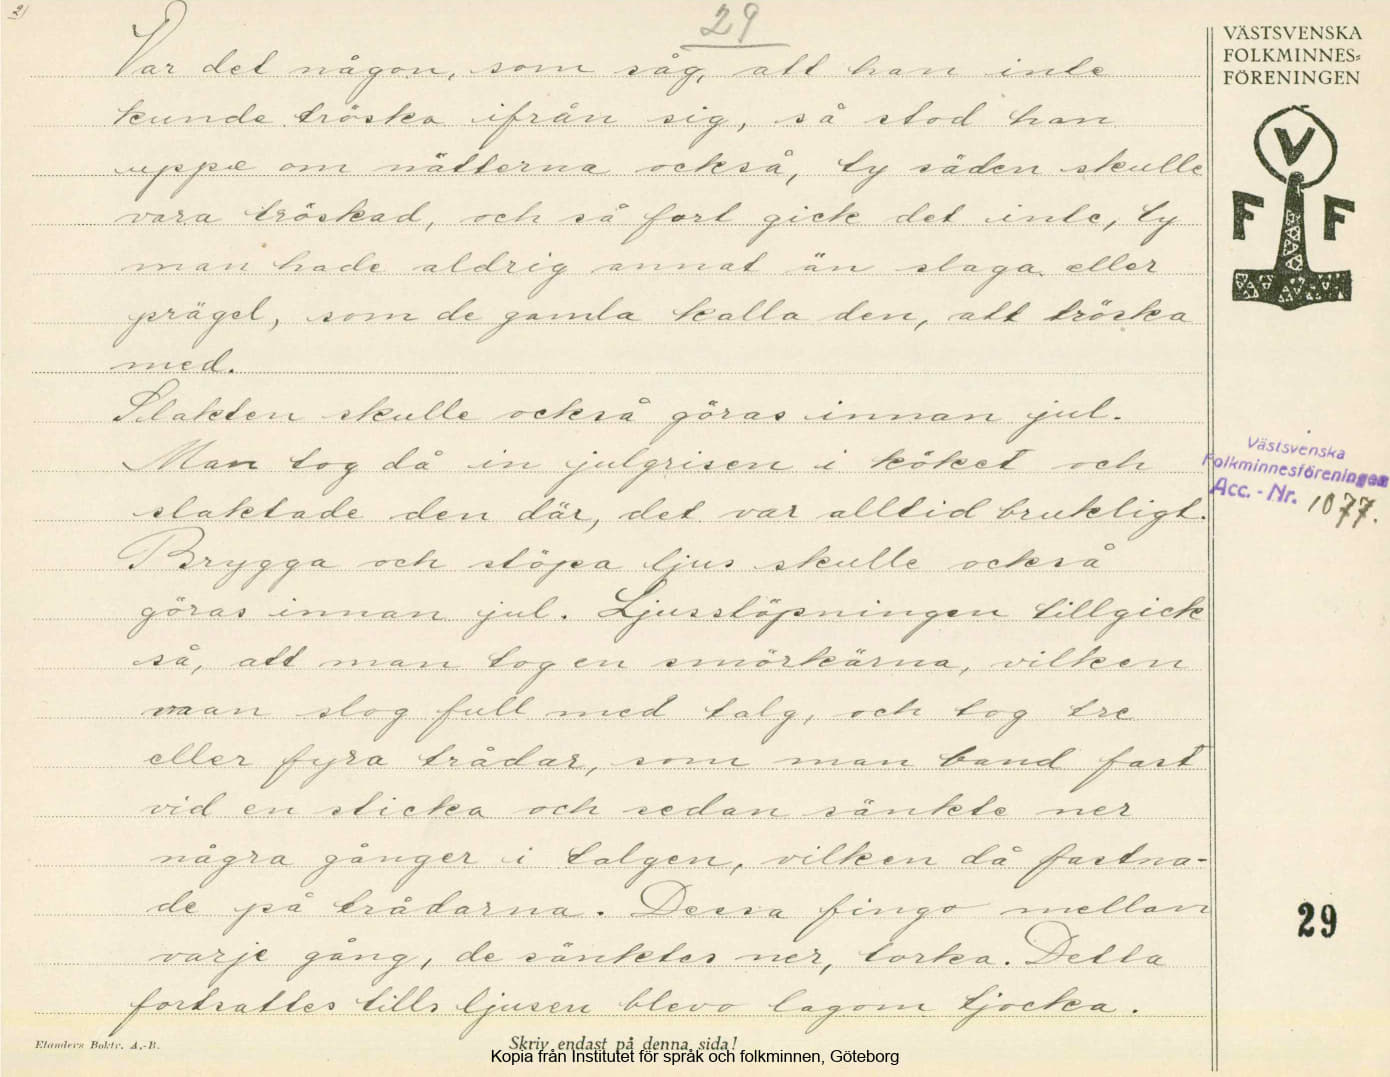 2)
29
Var det någon, som såg, att han inte
kunde tröska ifrån sig, så stod han
uppe om nätterna också, ty säden skulle
vara tröskad, och så fort gick det inte, ty
man hade aldrig annat än slaga eller
prägel, som de gamla kalla den, att tröska
med.
Slakten skulle också göras innan jul.
Man tog då in julgrisen i köket och
slaktade den där, det var alltid brukligt.
Brygga och stöpa ljus skulle också
göras innan jul. Ljusstöpningen tillgick
så, att man tog en smörkärna, vilken
man slog full med talg, och tog tre
eller fyra trådar, som man band fast
vid en sticka och sedan sänkte ner
några gånger i talgen, vilken då fastna-
de på trådarna. Dessa fingo mellan
varje gång, de sänktes ner, torka. Detta
fortsattes tills ljusen blevo lagom tjocka.
VÄSTSVENSKA
FOLKMINNES=
FÖRENINGEN
V
F F
Västsvenska
Folkminnesföreningen
Acc. - Nr. 1077.
29
Elanders Boktr. A.-B.
Skriv endast på denna sida!
Kopia från Institutet för språk och folkminnen, Göteborg